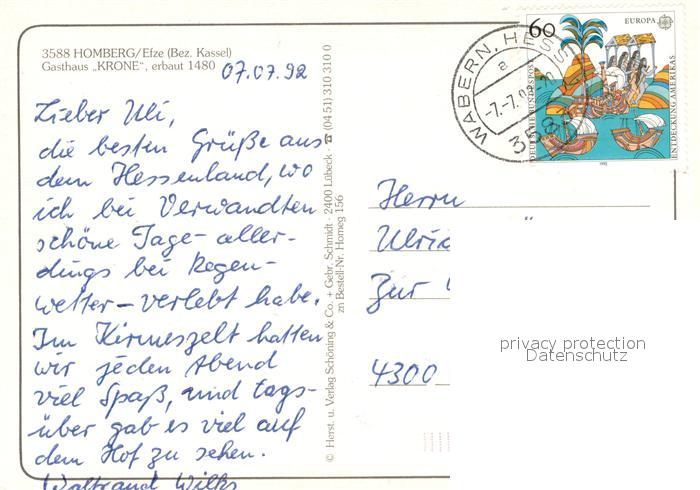 3588 HOMBERG/Efze (Bez. Kassel)
Gasthaus „KRONE“, erbaut 1480
07.07.92
Lieber Uli,
die besten Grüße aus
dem Hessenland, wo
ich bei Verwandten
schöne Tage - aller-
dings bei Regen-
wetter - verlebt habe.
Im Kirmeszelt hatten
wir jeden Abend
viel Spaß, und tags-
über gab es viel auf
dem Hof zu sehen.
Waltraud Wilks
© Herst. u. Verlag Schöning & Co + Gebr. Schmidt · 2400 Lübeck · ☎ (04 51) 310 310 0
zn Bestell-Nr. Homeg 156
WABERN, HESS
a
-7.-7.92
358
60
EUROPA
DEUTSCHE BUNDESPOST
ENTDECKUNG AMERIKAS
1992
Herrn
Ulric
Zur
4300
privacy protection
Datenschutz